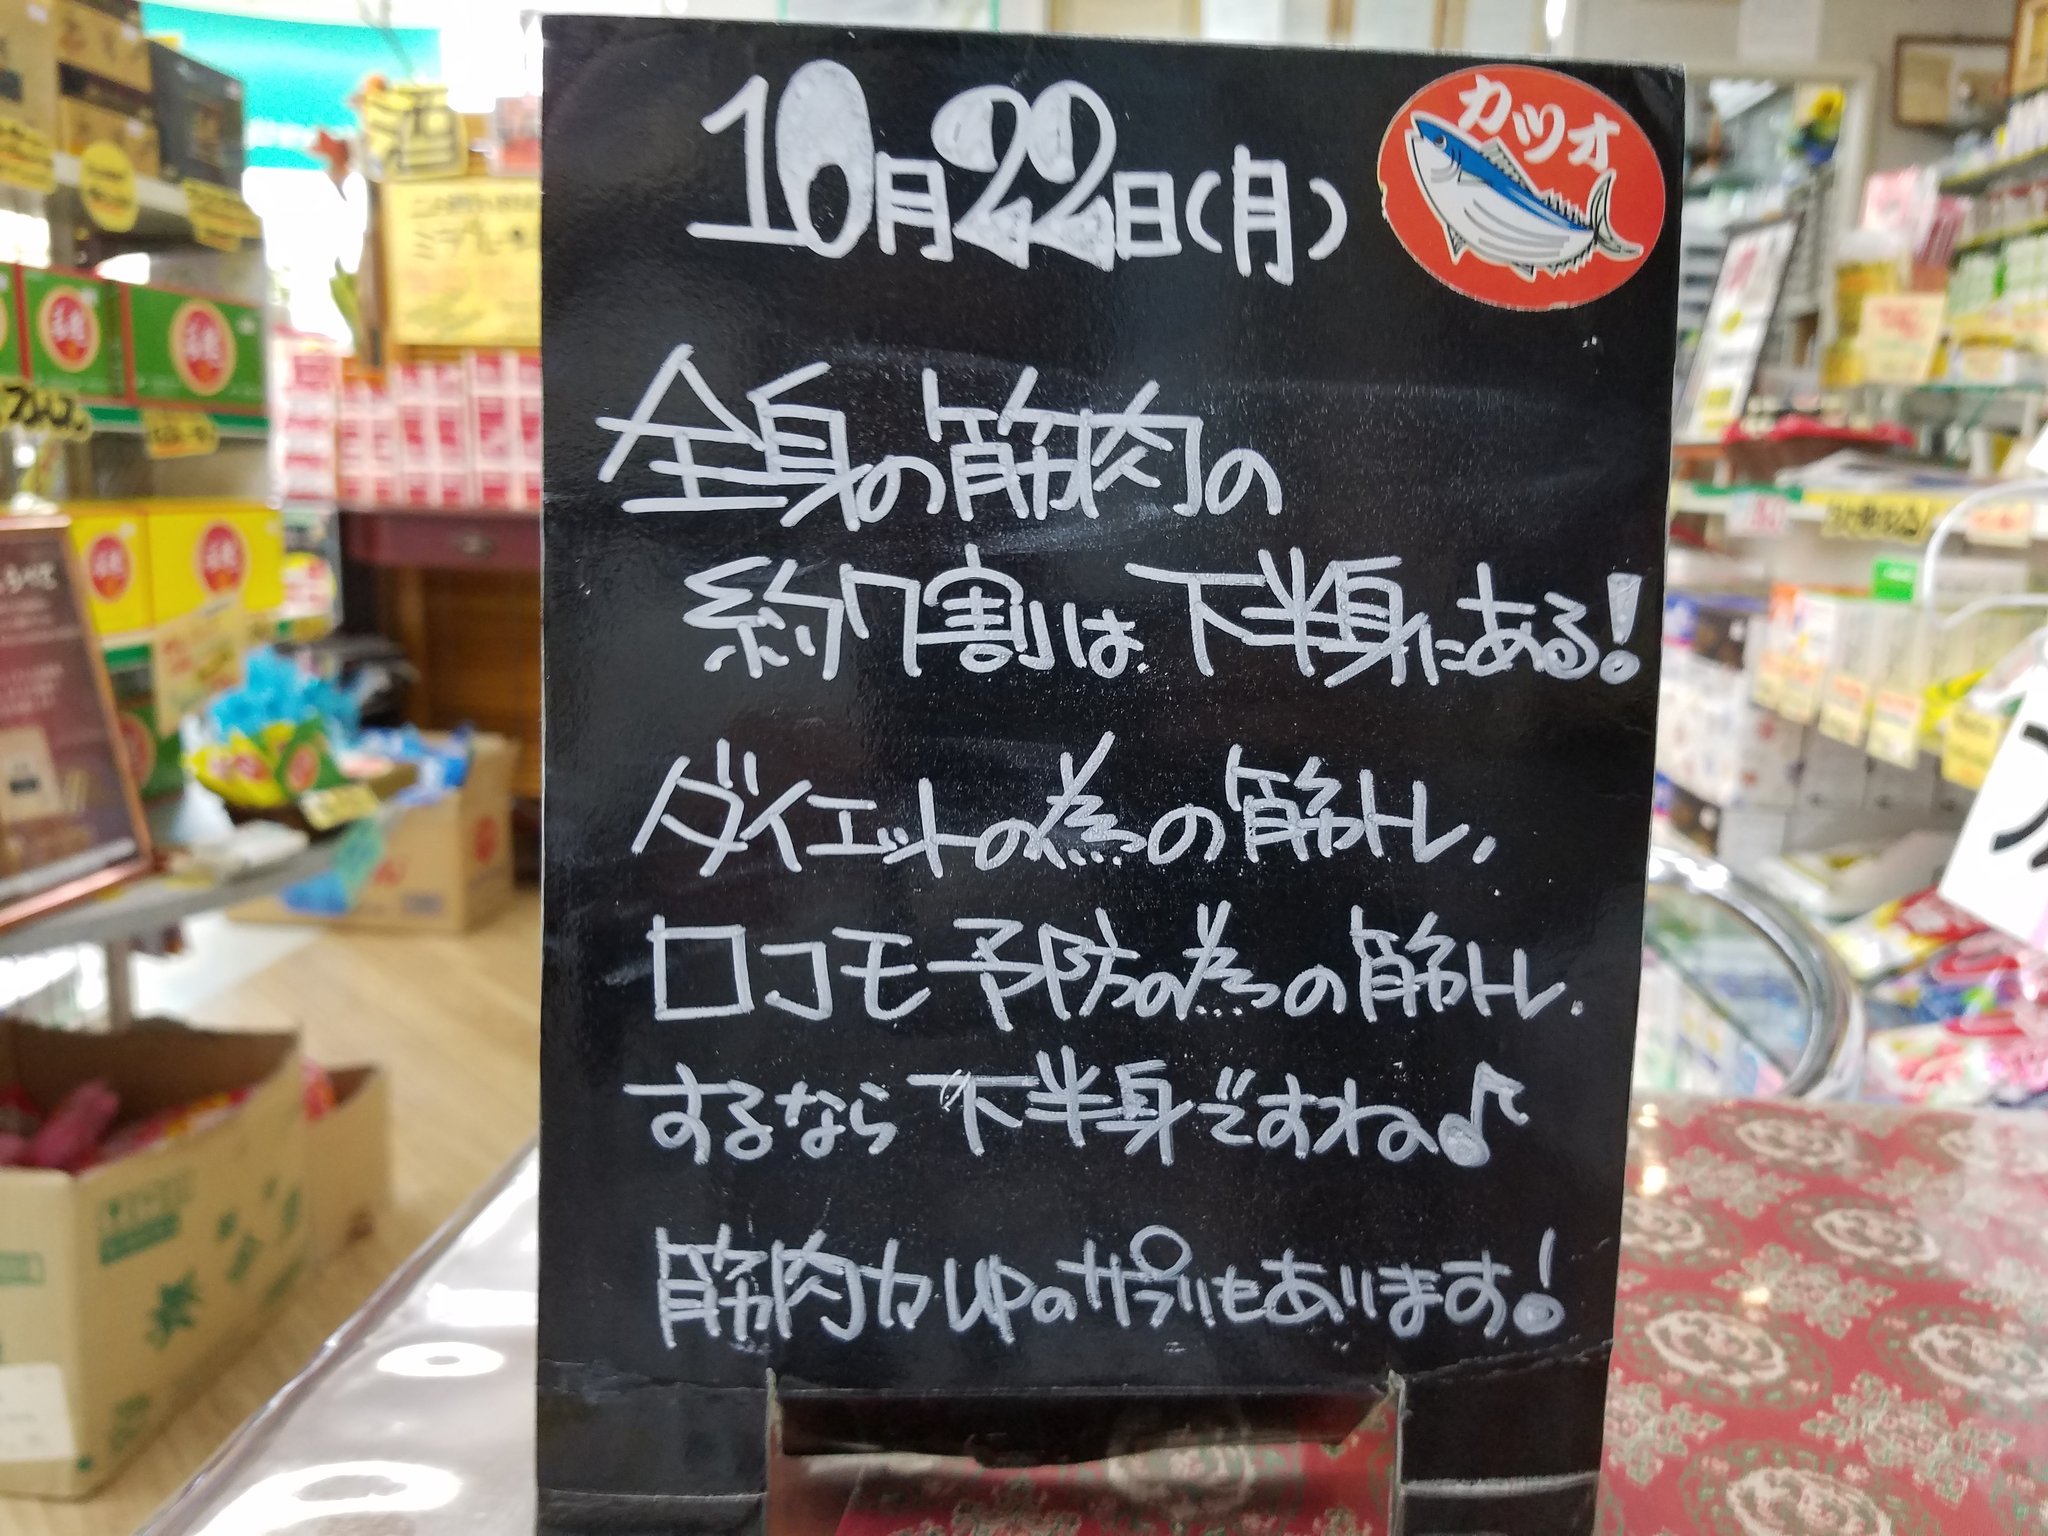 10月22日(月)
カツオ
全身の筋肉の
約7割は下半身にある!
ダイエットの為の筋トレ.
ロコモ予防の為の筋トレ.
するなら下半身ですね♪
筋肉力UPのサプリもあります!
酒